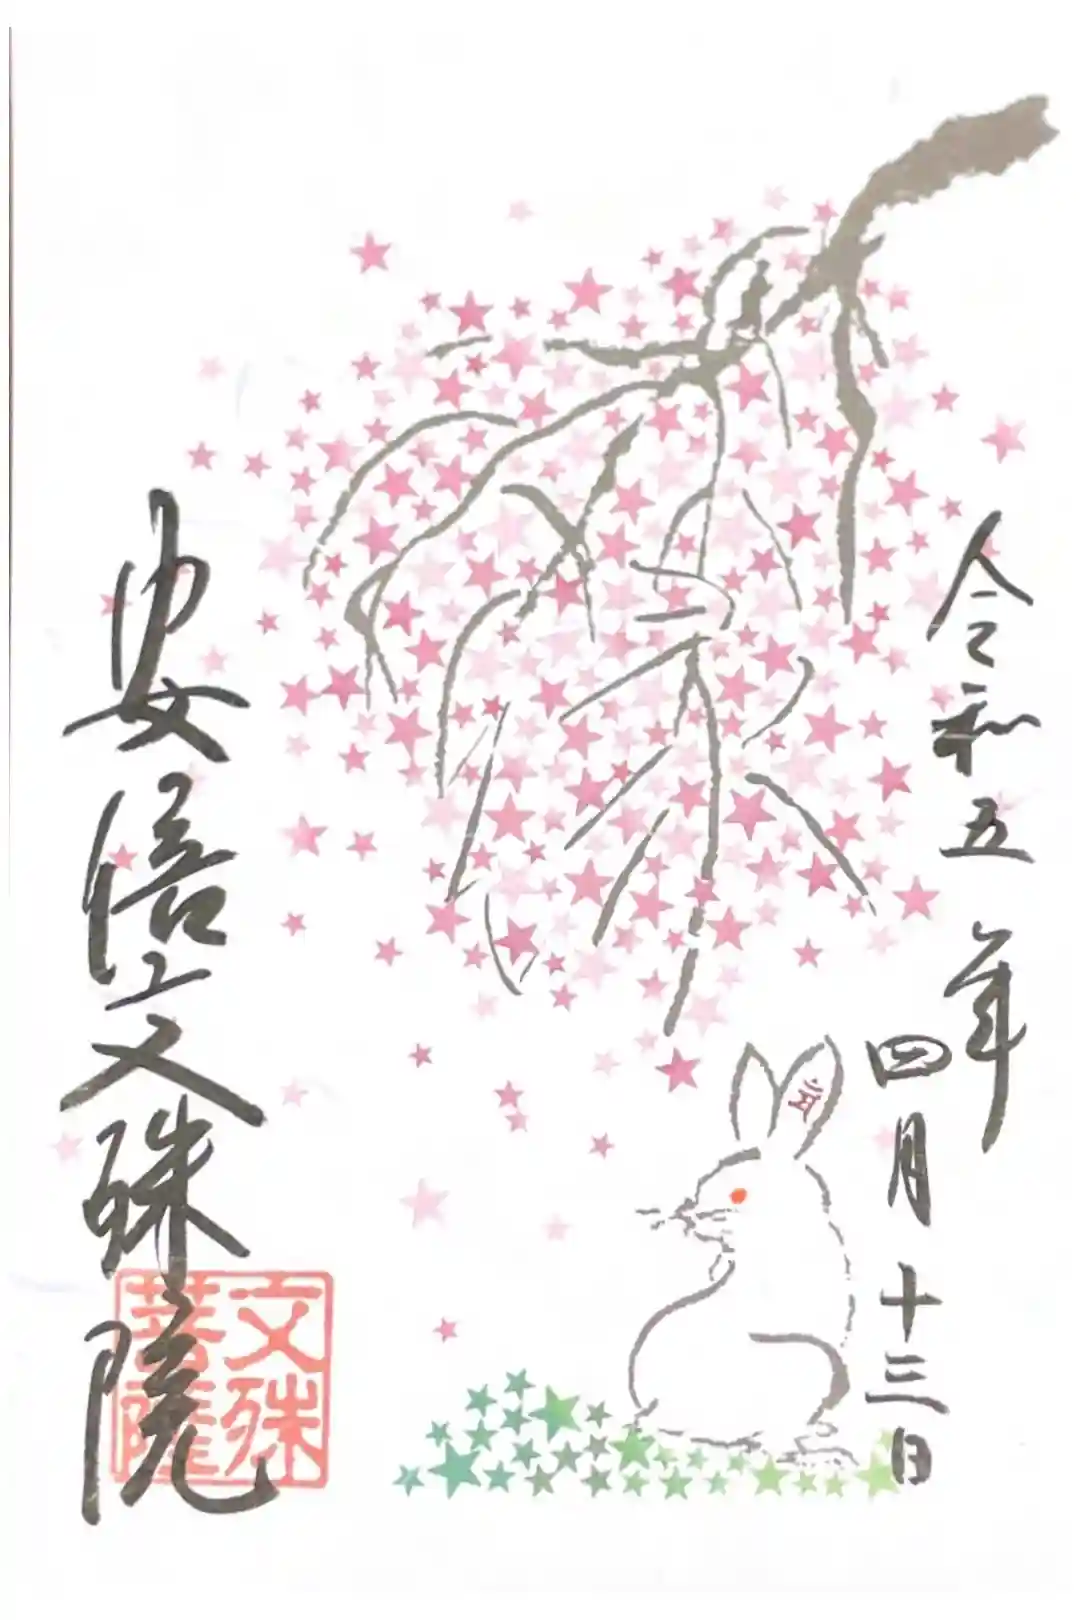 令和五年
四月十三日
安倍文殊院
文殊
菩薩